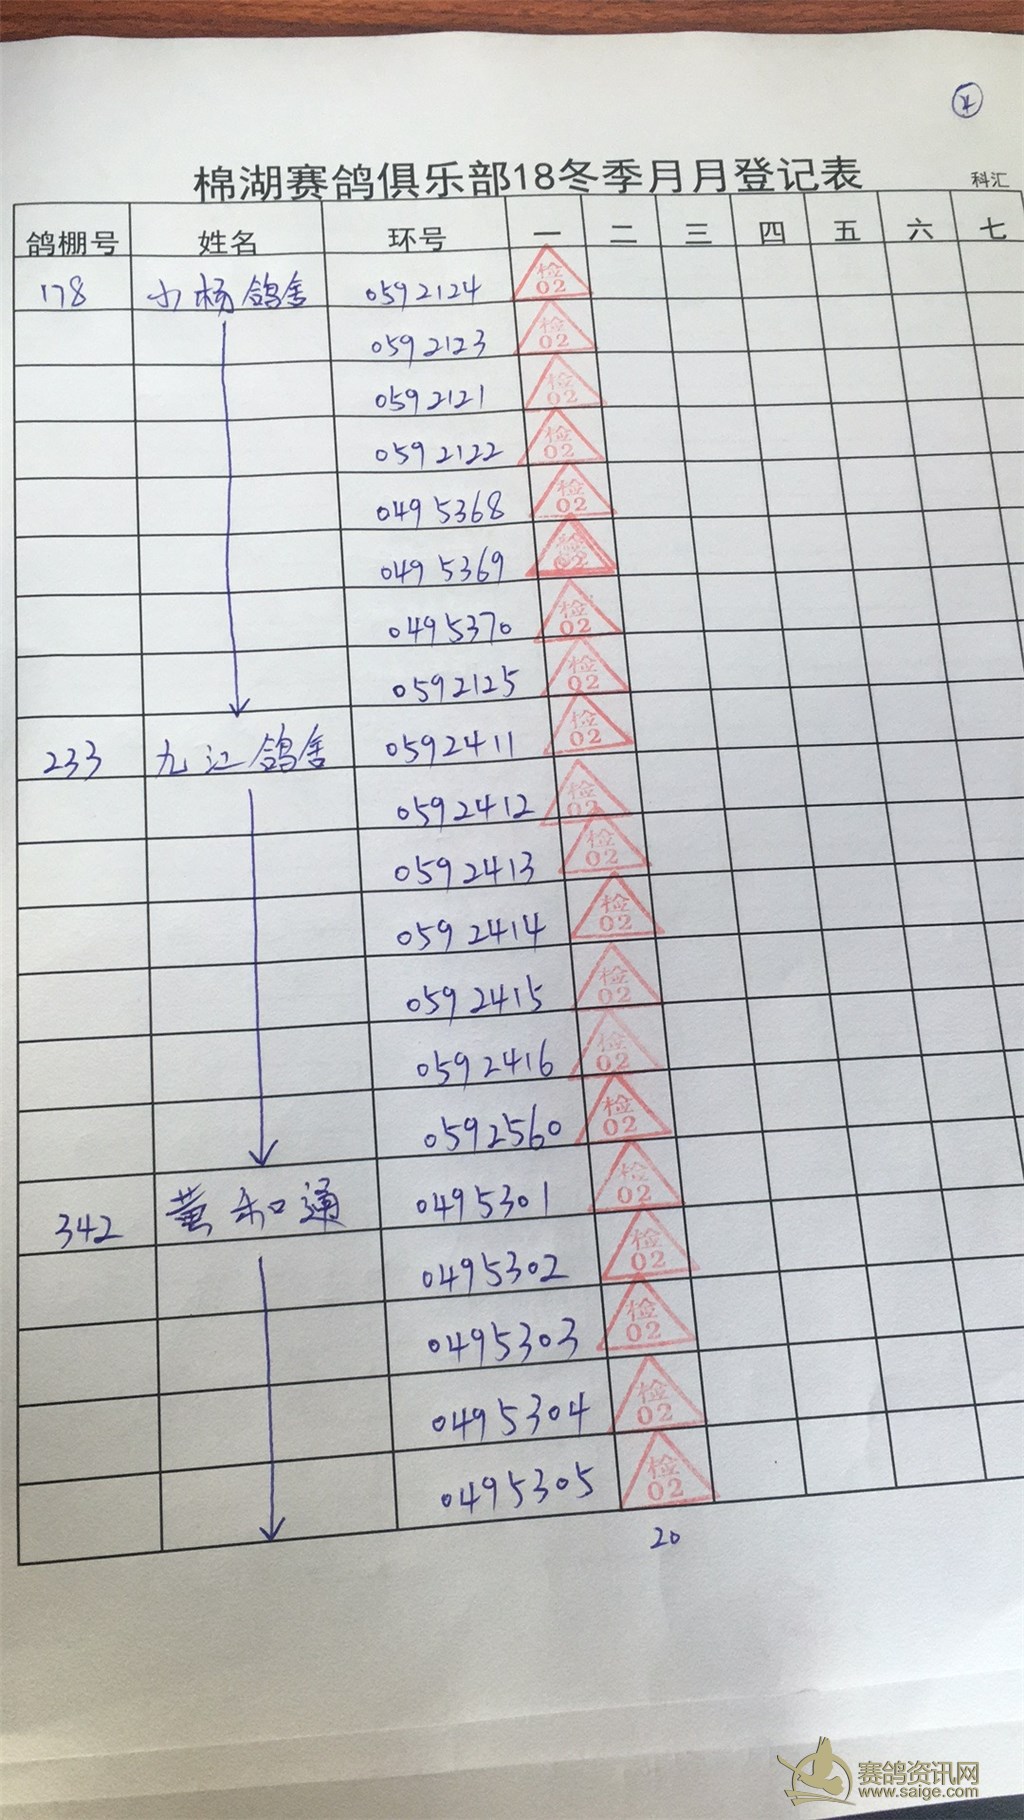 棉湖赛鸽俱乐部18冬季月月登记表 科汇
鸽棚号 姓名 环号 一 二 三 四 五 六 七
178 小杨鸽舍 0592124 检02
0592123 检02
0592121 检02
0592122 检02
0495368 检02
0495369 检02
0495370 检02
0592125 检02
233 九江鸽舍 0592411 检02
0592412 检02
0592413 检02
0592414 检02
0592415 检02
0592416 检02
0592560 检02
342 黄和通 0495301 检02
0495302 检02
0495303 检02
0495304 检02
0495305 检02
20
赛鸽资讯网
www.saige.com